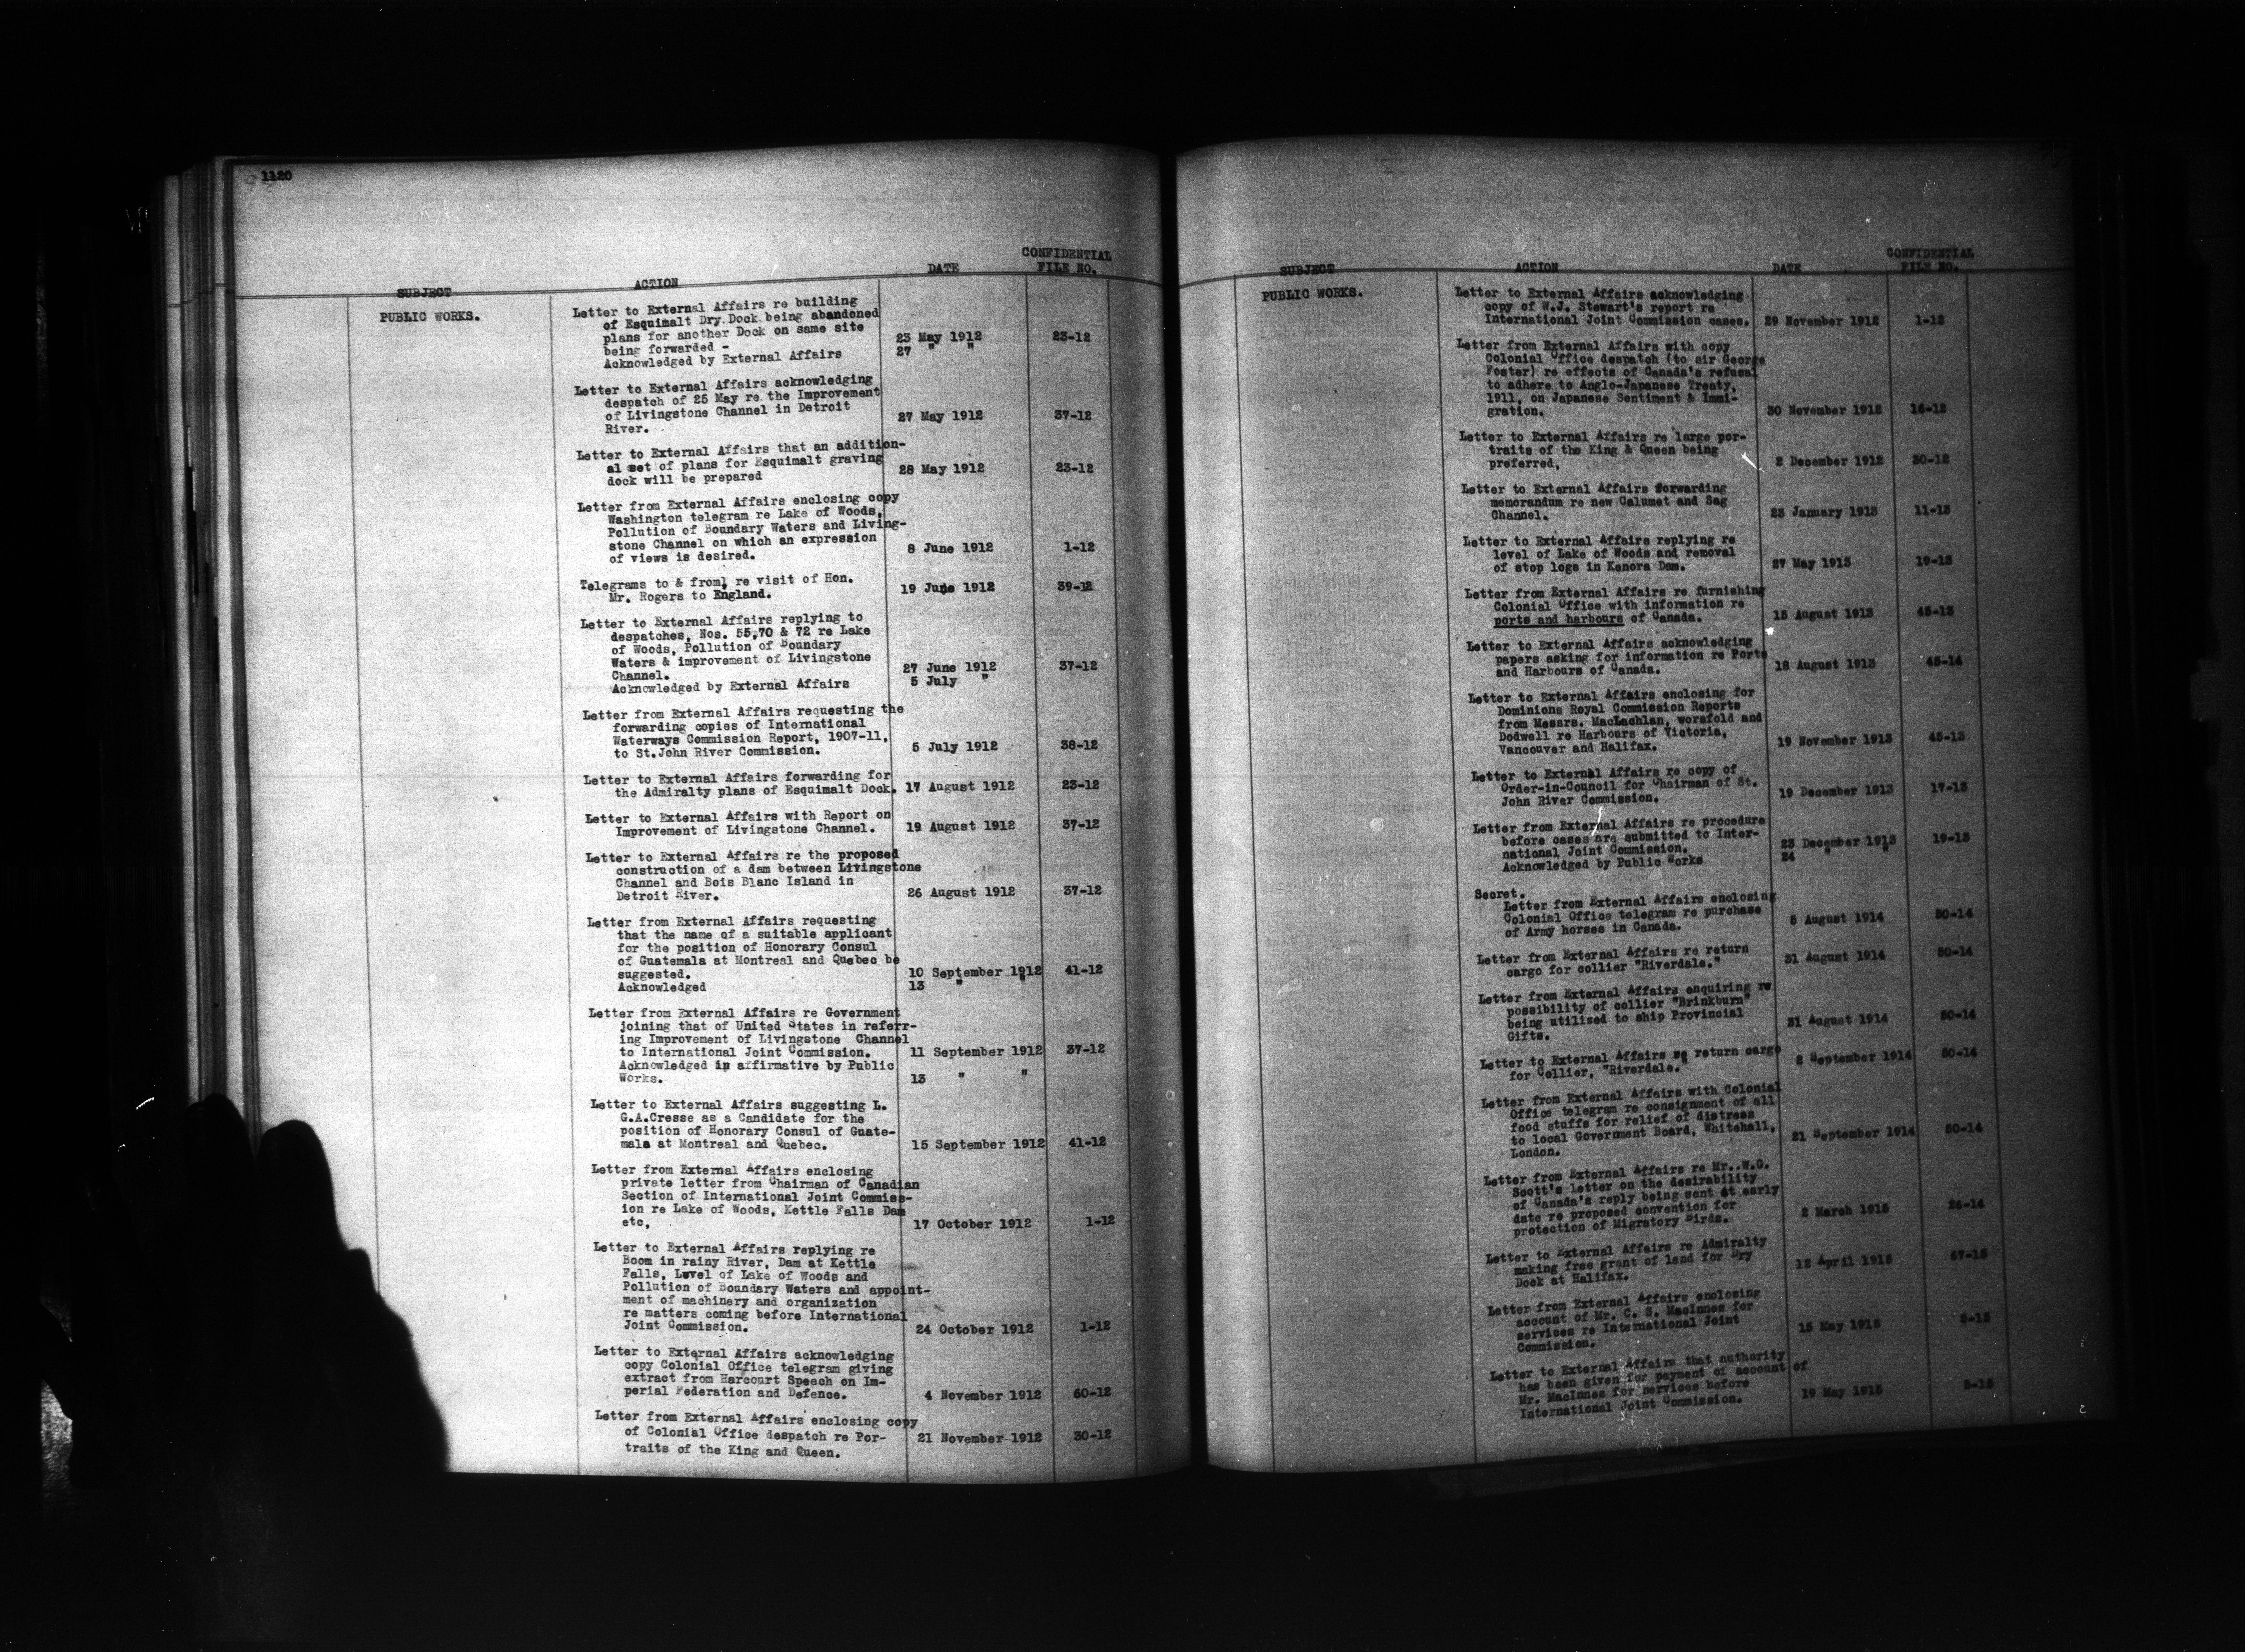 1120
SUBJECT ACTION DATE CONFIDENTIAL FILE NO.
PUBLIC WORKS.
Letter to External Affairs re building
of Esquimalt Dry Dock being abandoned
plans for another Dock on same site
being forwarded - 23 May 1912 23-12
Acknowledged by External Affairs 27 " "
Letter to External Affairs acknowledging
despatch of 25 May re the Improvement
of Livingstone Channel in Detroit
River. 27 May 1912 37-12
Letter to External Affairs that an addition-
al set of plans for Esquimalt graving
dock will be prepared 28 May 1912 23-12
Letter from External Affairs enclosing copy
Washington telegram re Lake of Woods,
Pollution of Boundary Waters and Living-
stone Channel on which an expression
of views is desired. 8 June 1912 1-12
Telegrams to & from, re visit of Hon.
Mr. Rogers to England. 19 June 1912 39-12
Letter to External Affairs replying to
despatches, Nos. 55,70 & 72 re Lake
of Woods, Pollution of Boundary
Waters & improvement of Livingstone
Channel. 27 June 1912 37-12
Acknowledged by External Affairs 5 July "
Letter from External Affairs requesting the
forwarding copies of International
Waterways Commission Report, 1907-11,
to St.John River Commission. 5 July 1912 38-12
Letter to External Affairs forwarding for
the Admiralty plans of Esquimalt Dock. 17 August 1912 23-12
Letter to External Affairs with Report on
Improvement of Livingstone Channel. 19 August 1912 37-12
Letter to External Affairs re the proposed
construction of a dam between Livingstone
Channel and Bois Blanc Island in
Detroit River. 26 August 1912 37-12
Letter from External Affairs requesting
that the name of a suitable applicant
for the position of Honorary Consul
of Guatemala at Montreal and Quebec be
suggested. 10 September 1912 41-12
Acknowledged 13 " "
Letter from External Affairs re Government
joining that of United States in referr-
ing Improvement of Livingstone Channel
to International Joint Commission. 11 September 1912 37-12
Acknowledged in affirmative by Public
Works. 13 " "
Letter to External Affairs suggesting L.
G.A.Cresse as a Candidate for the
position of Honorary Consul of Guate-
mala at Montreal and Quebec. 15 September 1912 41-12
Letter from External Affairs enclosing
private letter from Chairman of Canadian
Section of International Joint Commiss-
ion re Lake of Woods, Kettle Falls Dam
etc, 17 October 1912 1-12
Letter to External Affairs replying re
Boom in rainy River, Dam at Kettle
Falls, Level of Lake of Woods and
Pollution of Boundary Waters and appoint-
ment of machinery and organization
re matters coming before International
Joint Commission. 24 October 1912 1-12
Letter to External Affairs acknowledging
copy Colonial Office telegram giving
extract from Harcourt Speech on Im-
perial Federation and Defence. 4 November 1912 60-12
Letter from External Affairs enclosing copy
of Colonial Office despatch re Por-
traits of the King and Queen. 21 November 1912 30-12
SUBJECT ACTION DATE CONFIDENTIAL FILE NO.
PUBLIC WORKS.
Letter to External Affairs acknowledging
copy of W.J. Stewart's report re
International Joint Commission cases. 29 November 1912 1-12
Letter from External Affairs with copy
Colonial Office despatch (to sir George
Foster) re effects of Canada's refusal
to adhere to Anglo-Japanese Treaty,
1911, on Japanese Sentiment & Immi-
gration. 30 November 1912 16-12
Letter to External Affairs re large por-
traits of the King & Queen being
preferred, 2 December 1912 30-12
Letter to External Affairs forwarding
memorandum re new Calumet and Sag
Channel. 23 January 1913 11-13
Letter to External Affairs replying re
level of Lake of Woods and removal
of stop logs in Kenora Dam. 27 May 1913 19-13
Letter from External Affairs re furnishing
Colonial Office with information re
ports and harbours of Canada. 15 August 1913 45-13
Letter to External Affairs acknowledging
papers asking for information re Ports
and Harbours of Canada. 18 August 1913 45-14
Letter to External Affairs enclosing for
Dominions Royal Commission Reports
from Messrs. MacLachlan, worsfold and
Dodwell re Harbours of Victoria,
Vancouver and Halifax. 19 November 1913 45-13
Letter to External Affairs re copy of
Order-in-Council for Chairman of St.
John River Commission. 19 December 1913 17-13
Letter from External Affairs re procedure
before cases are submitted to Inter-
national Joint Commission. 23 December 1913 19-13
Acknowledged by Public Works 24 " "
Secret.
Letter from External Affairs enclosing
Colonial Office telegram re purchase
of Army horses in Canada. 5 August 1914 50-14
Letter from External Affairs re return
cargo for collier "Riverdale." 31 August 1914 50-14
Letter from External Affairs enquiring re
possibility of collier "Brinkburn"
being utilized to ship Provincial
Gifts. 31 August 1914 50-14
Letter to External Affairs re return cargo
for Collier, "Riverdale." 2 September 1914 50-14
Letter from External Affairs with Colonial
Office telegram re consignment of all
food stuffs for relief of distress
to local Government Board, Whitehall,
London. 21 September 1914 50-14
Letter from External Affairs re Mr. W.G.
Scott's letter on the desirability
of Canada's reply being sent at early
date re proposed convention for
protection of Migratory Birds. 2 March 1915 26-14
Letter to External Affairs re Admiralty
making free grant of land for Dry
Dock at Halifax. 12 April 1915 57-15
Letter from External Affairs enclosing
account of Mr. C. S. MacInnes for
services re International Joint
Commission. 15 May 1915 5-15
Letter to External Affairs that authority
has been given for payment of account of
Mr. MacInnes for services before
International Joint Commission. 19 May 1915 5-15